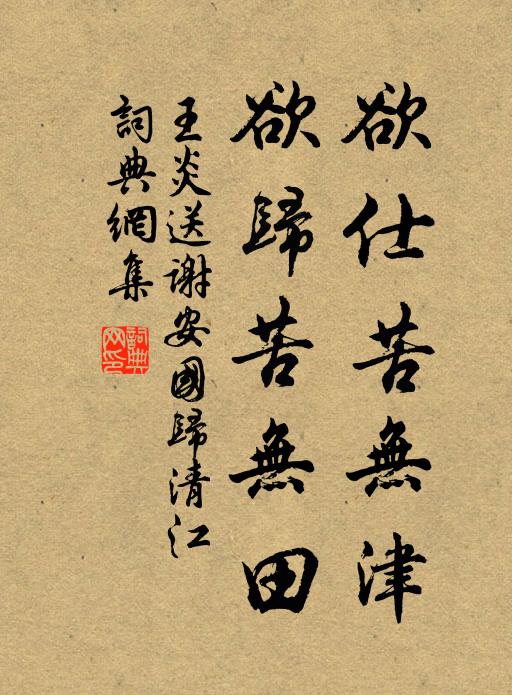 欲仕苦無津
欲歸苦無田
王炎送謝安國歸清江
詞典網集
詞典網印